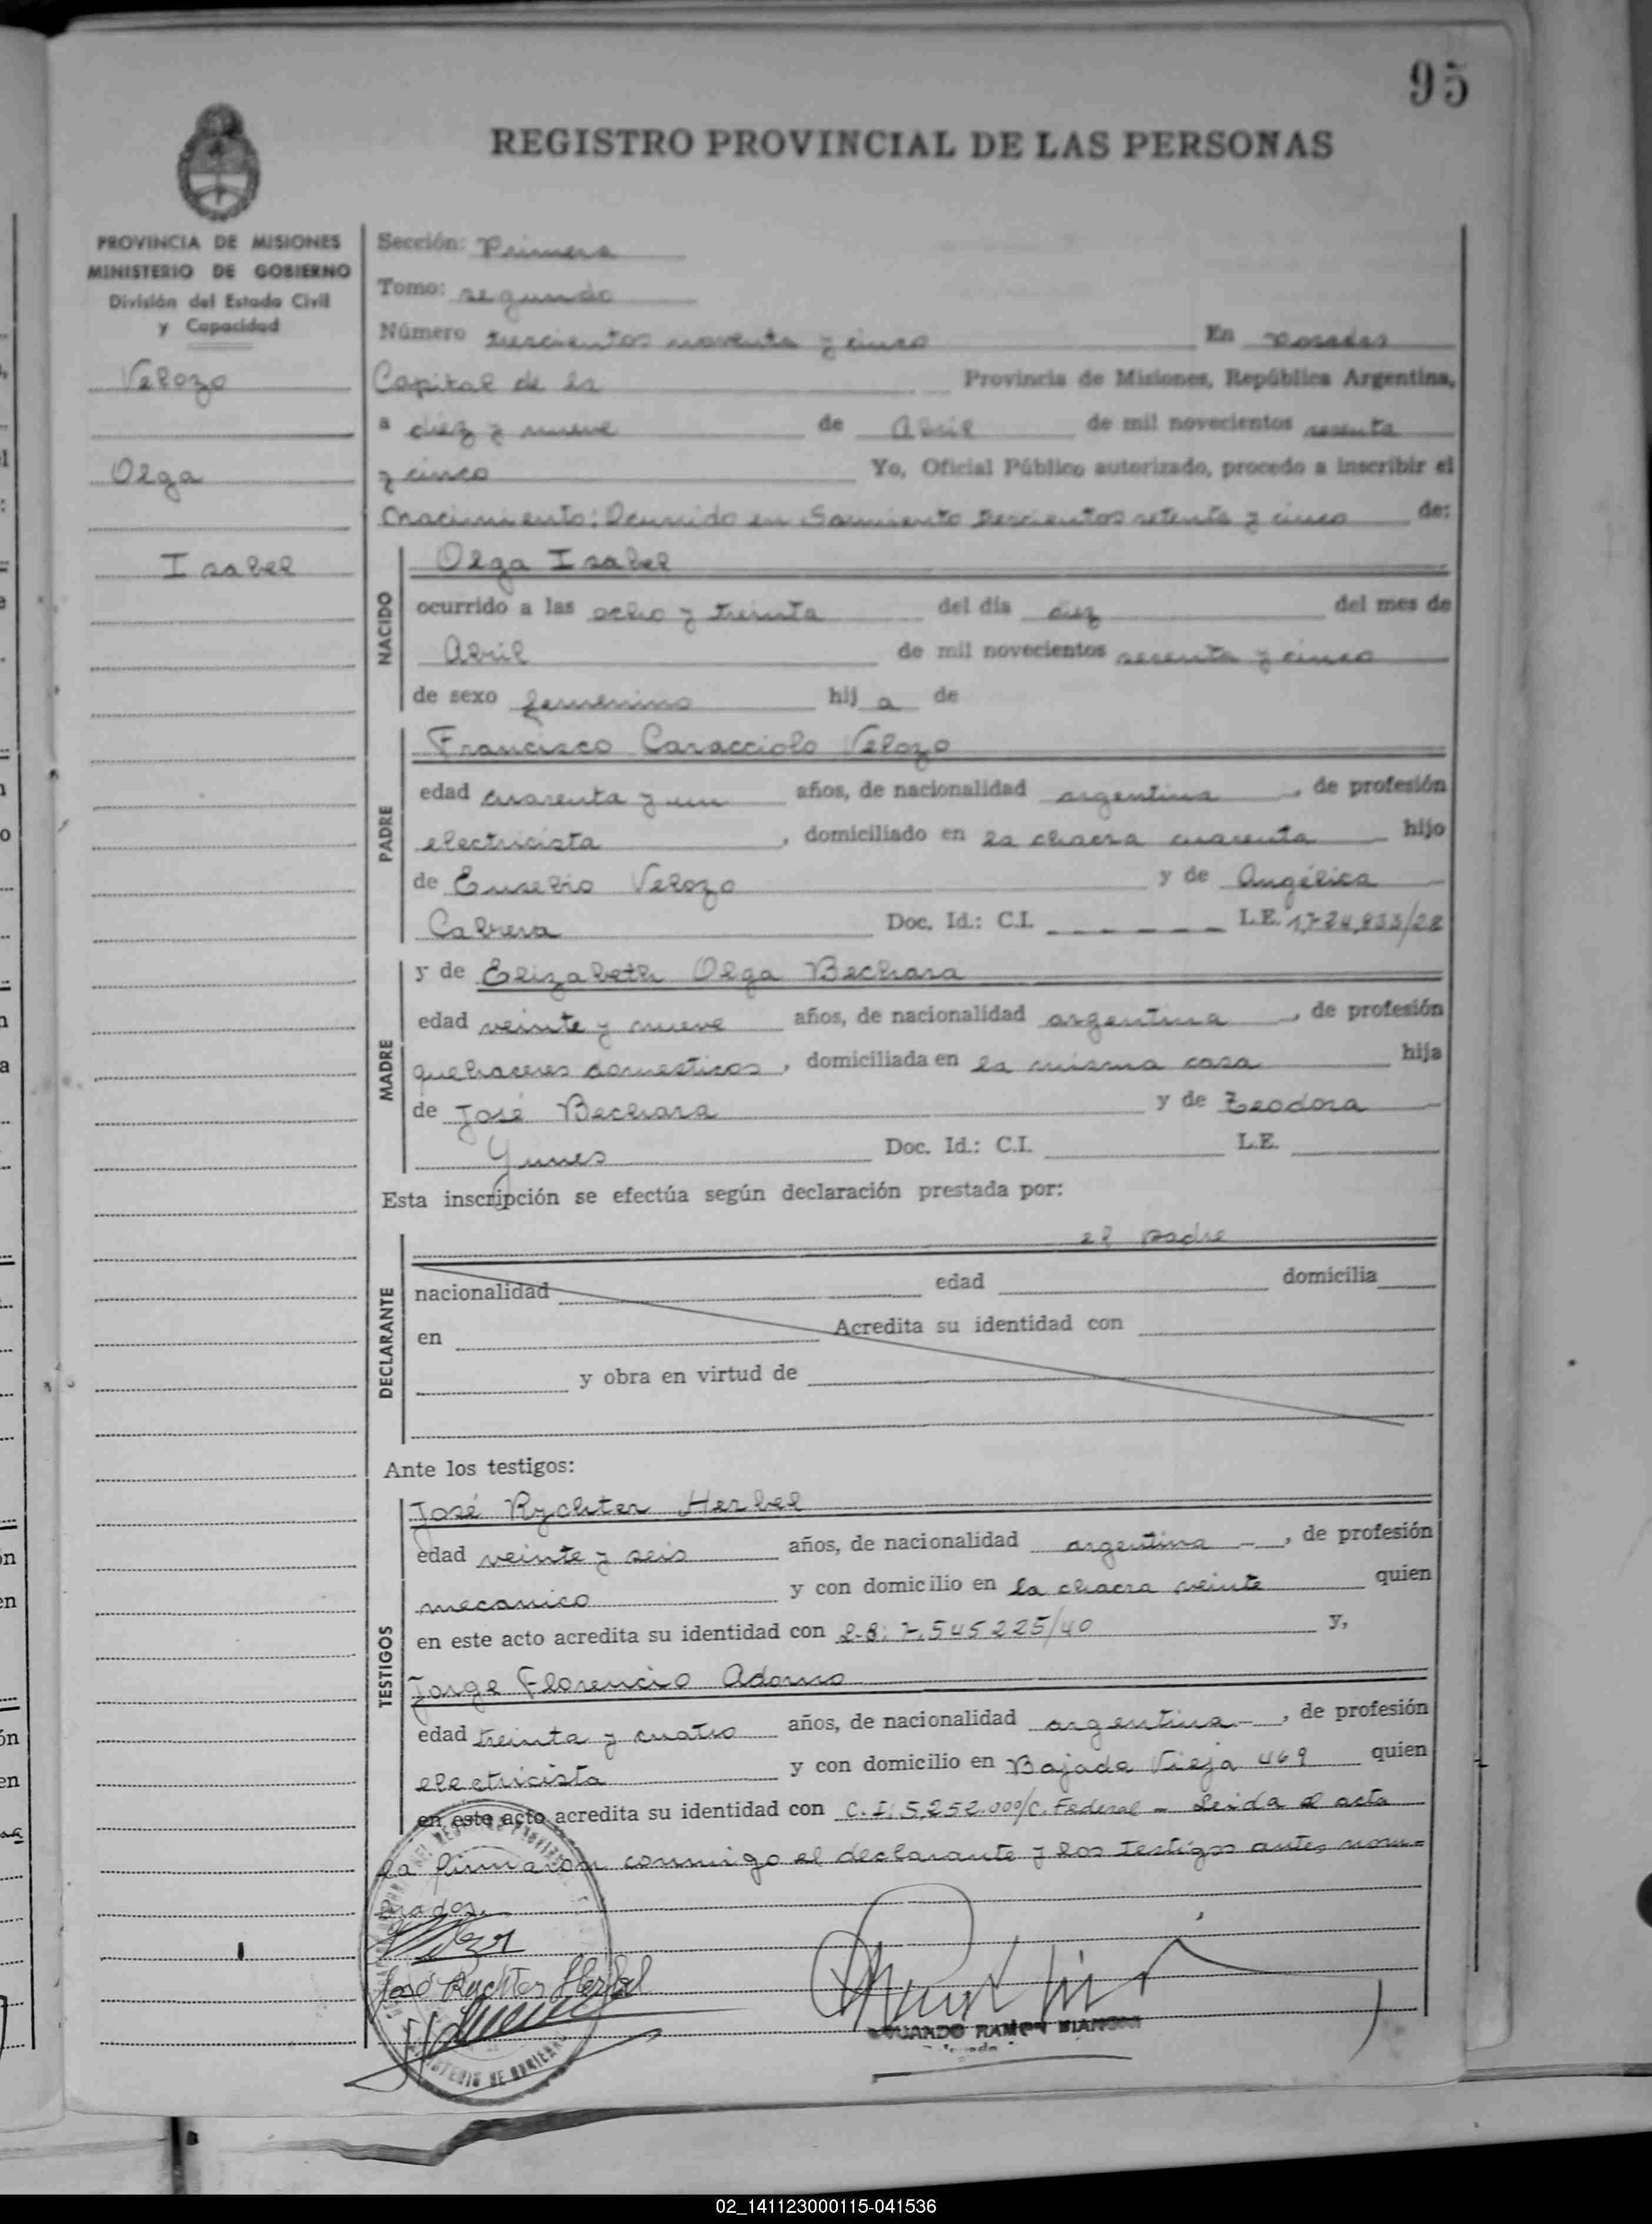 95
REGISTRO PROVINCIAL DE LAS PERSONAS
PROVINCIA DE MISIONES
MINISTERIO DE GOBIERNO
División del Estado Civil
y Capacidad
Velozo
Olga
Isabel
Sección: Primera
Tomo: segundo
Número trescientos noventa y cinco En Posadas
Capital de la Provincia de Misiones, República Argentina,
a diez y nueve de Abril de mil novecientos sesenta
y cinco Yo, Oficial Público autorizado, procedo a inscribir el
nacimiento: Ocurrido en Sarmiento trescientos setenta y cinco de:
NACIDO
Olga Isabel
ocurrido a las ocho y treinta del día diez del mes de
Abril de mil novecientos sesenta y cinco
de sexo femenino hij a de
PADRE
Francisco Caracciolo Velozo
edad cuarenta y un años, de nacionalidad argentina, de profesión
electricista, domiciliado en la chacra cuarenta hijo
de Eusebio Velozo y de Angélica
Cabrera Doc. Id.: C.I. _ _ _ _ _ _ L.E.
MADRE
y de Elizabeth Olga Bechara
edad veinte y nueve años, de nacionalidad argentina, de profesión
quehaceres domesticos, domiciliada en la misma casa hija
de José Bechara y de Teodora
Yunes Doc. Id.: C.I. L.E.
Esta inscripción se efectúa según declaración prestada por:
DECLARANTE
el padre
nacionalidad edad domicilia
en Acredita su identidad con
y obra en virtud de
Ante los testigos:
TESTIGOS
José Rychter Herbel
edad veinte y seis años, de nacionalidad argentina -, de profesión
mecanico y con domicilio en la chacra veinte quien
en este acto acredita su identidad con 7.545225/40 y,
Jorge Florencio Adorno
edad treinta y cuatro años, de nacionalidad argentina -, de profesión
electricista y con domicilio en Bajada Vieja 469 quien
en este acto acredita su identidad con C.I: 5,252.000/C. Federal - Leida el acta
la firmaron conmigo el declarante y los testigos antes nom-
brados.
José Rychter Herbel
RAMON BIANCHI
MINISTERIO DE GOBIERNO
02_141123000115-041536